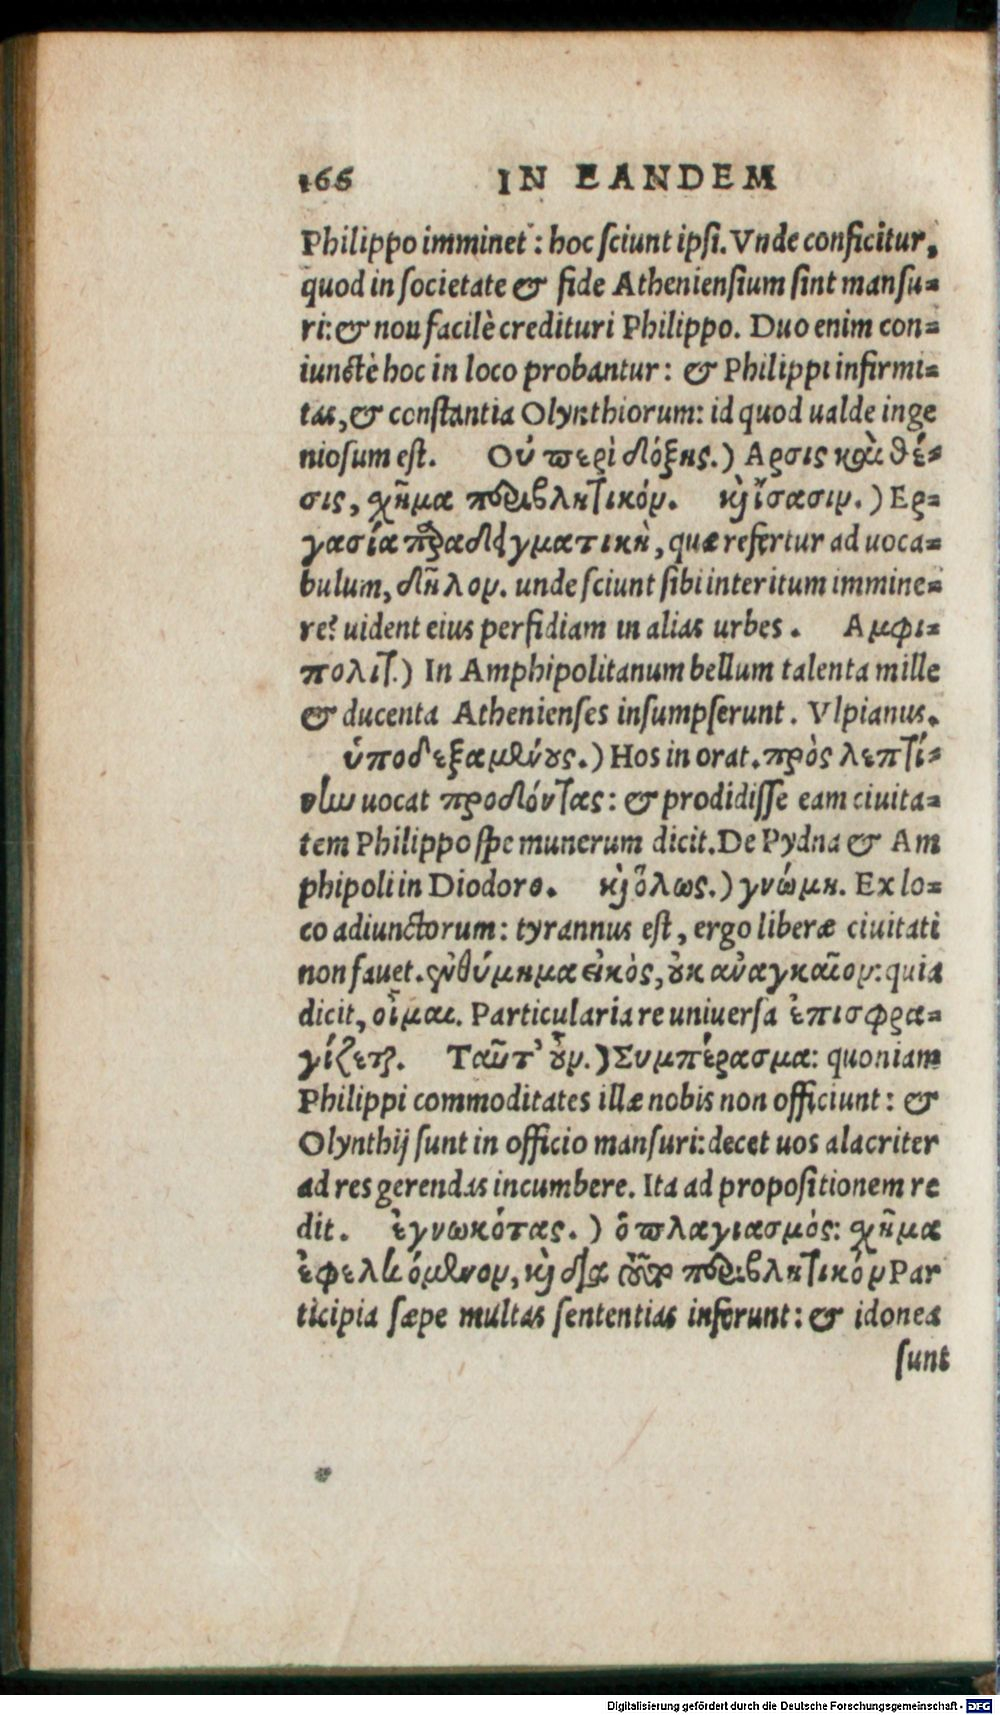 166 IN EANDEM
Philippo imminet: hoc sciunt ipsi. Vnde conficitur,
quod in societate & fide Atheniensium sint mansu-
ri: & non facilè credituri Philippo. Duo enim con-
iunctè hoc in loco probantur: & Philippi infirmi-
tas, & constantia Olynthiorum: id quod ualde inge
niosum est. Οὐ περὶ δόξης.) Αρσις καὶ θέ-
σις, χῆμα περιβλητικόν. καὶ ἴσασιν.) Ερ-
γασία παραδειγματικὴ, quæ refertur ad uoca-
bulum, δῆλον. unde sciunt sibi interitum immine-
re? uident eius perfidiam in alias urbes. Αμφι-
πολιτ.) In Amphipolitanum bellum talenta mille
& ducenta Athenienses insumpserunt. Vlpianus.
ὑποδεξαμένους.) Hos in orat. πρὸς λεπτί-
νην uocat προδόντας: & prodidisse eam ciuita-
tem Philippo spe munerum dicit. De Pydna & Am
phipoli in Diodoro. καὶ ὅλως.) γνώμη. Ex lo-
co adiunctorum: tyrannus est, ergo liberæ ciuitati
non fauet. ἐνθύμημα εἰκὸς, οὐκ ἀναγκαῖον: quia
dicit, οἶμαι. Particularia re uniuersa ἐπισφρα-
γίζεται. Ταῦτ' οὖν.) Συμπέρασμα: quoniam
Philippi commoditates illæ nobis non officiunt: &
Olynthij sunt in officio mansuri: decet uos alacriter
ad res gerendas incumbere. Ita ad propositionem re
dit. ἐγνωκότας.) ὁ πλαγιασμὸς: χῆμα
ἐφελκόμενον, καὶ διὰ τοῦτο περιβλητικόν Par
ticipia sæpe multas sententias inferunt: & idonea
sunt
Digitalisierung gefördert durch die Deutsche Forschungsgemeinschaft - DFG